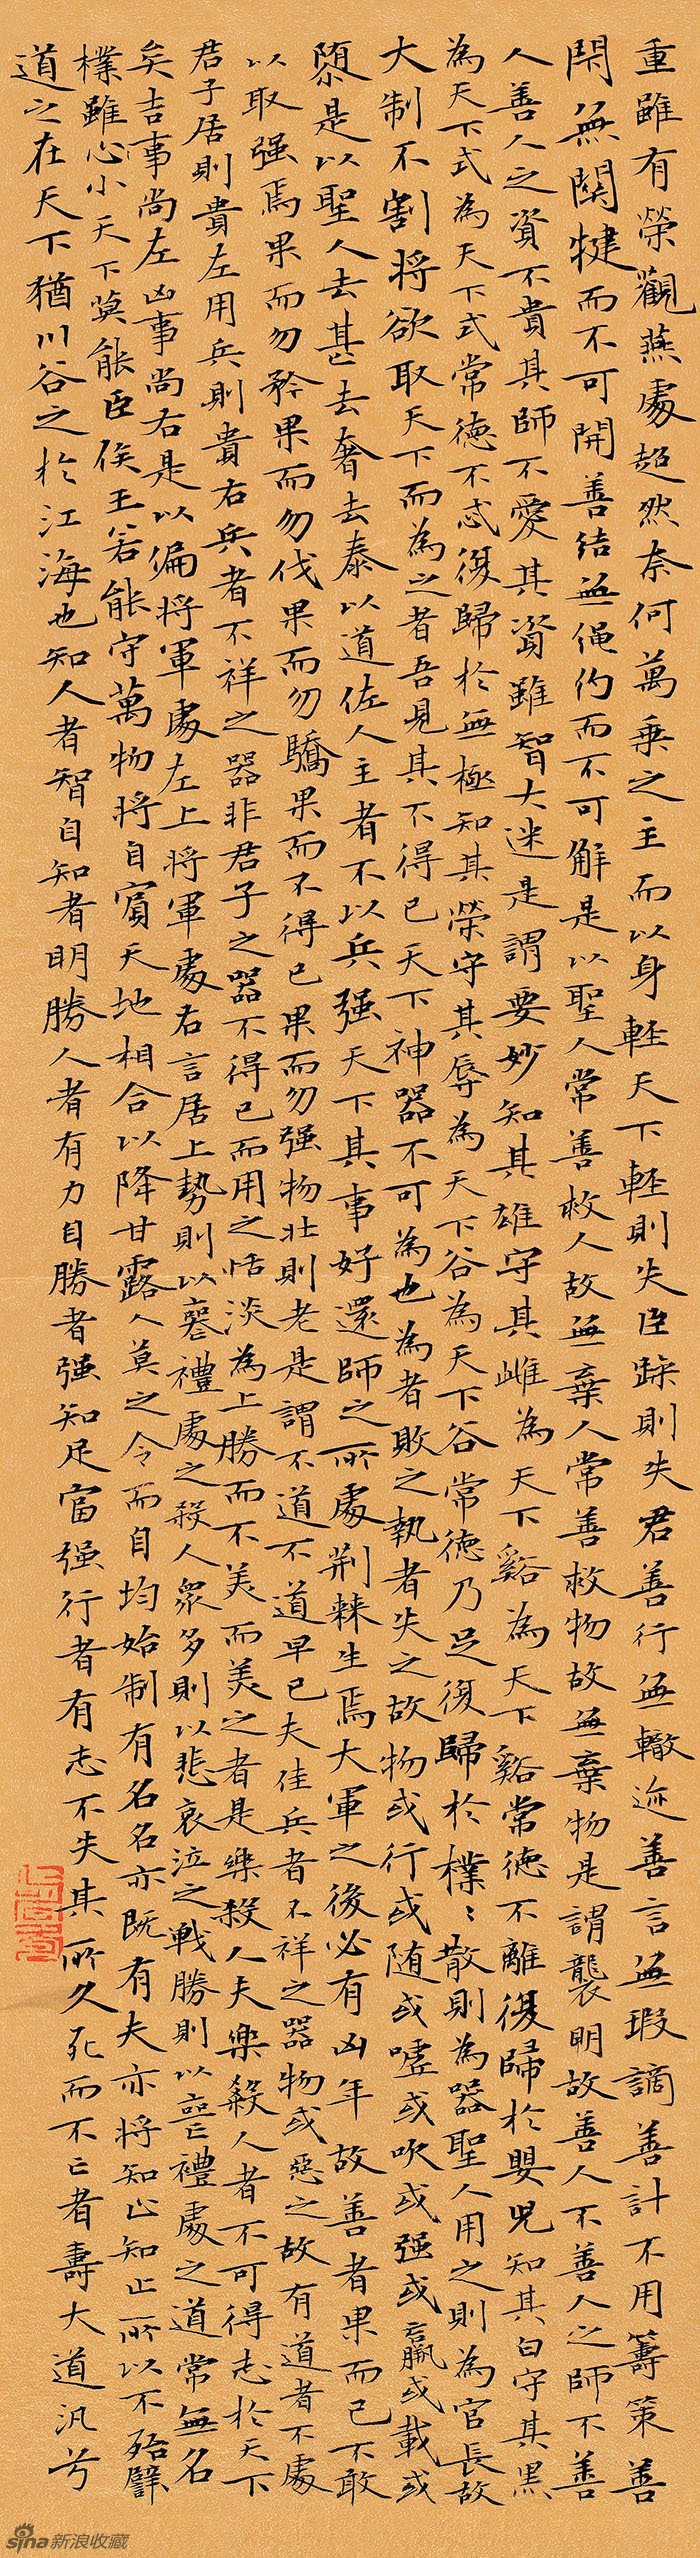 重雖有榮觀燕處超然奈何萬乘之主而以身輕天下輕則失臣躁則失君善行無轍迹善言無瑕謫善計不用籌策善
閇無關揵而不可開善結無繩約而不可解是以聖人常善救人故無棄人常善救物故無棄物是謂襲明故善人不善人之師不善
人善人之資不貴其師不愛其資雖智大迷是謂要妙知其雄守其雌為天下谿為天下谿常德不離復歸於嬰兒知其白守其黑
為天下式為天下式常德不忒復歸於無極知其榮守其辱為天下谷為天下谷常德乃足復歸於樸〻散則為器聖人用之則為官長故
大制不割將欲取天下而為之者吾見其不得已天下神器不可為也為者敗之執者失之故物或行或随或噓或吹或强或羸或載或
隳是以聖人去甚去奢去泰以道佐人主者不以兵强天下其事好還師之所處荆棘生焉大軍之後必有凶年故善者果而已不敢
以取强焉果而勿矜果而勿伐果而勿驕果而不得已果而勿强物壯則老是謂不道不道早已夫佳兵者不祥之器物或惡之故有道者不處
君子居則貴左用兵則貴右兵者不祥之器非君子之器不得已而用之恬淡為上勝而不美而美之者是樂殺人夫樂殺人者不可得志於天下
矣吉事尚左凶事尚右是以偏將軍處左上將軍處右言居上勢則以喪禮處之殺人衆多則以悲哀泣之戰勝則以喪禮處之道常無名
樸雖心小天下莫能臣侯王若能守萬物將自賓天地相合以降甘露人莫之令而自均始制有名名亦既有夫亦將知止知止所以不殆譬
道之在天下猶川谷之於江海也知人者智自知者明勝人者有力自勝者强知足富强行者有志不失其所久死而不亡者壽大道汎兮
sina新浪收藏